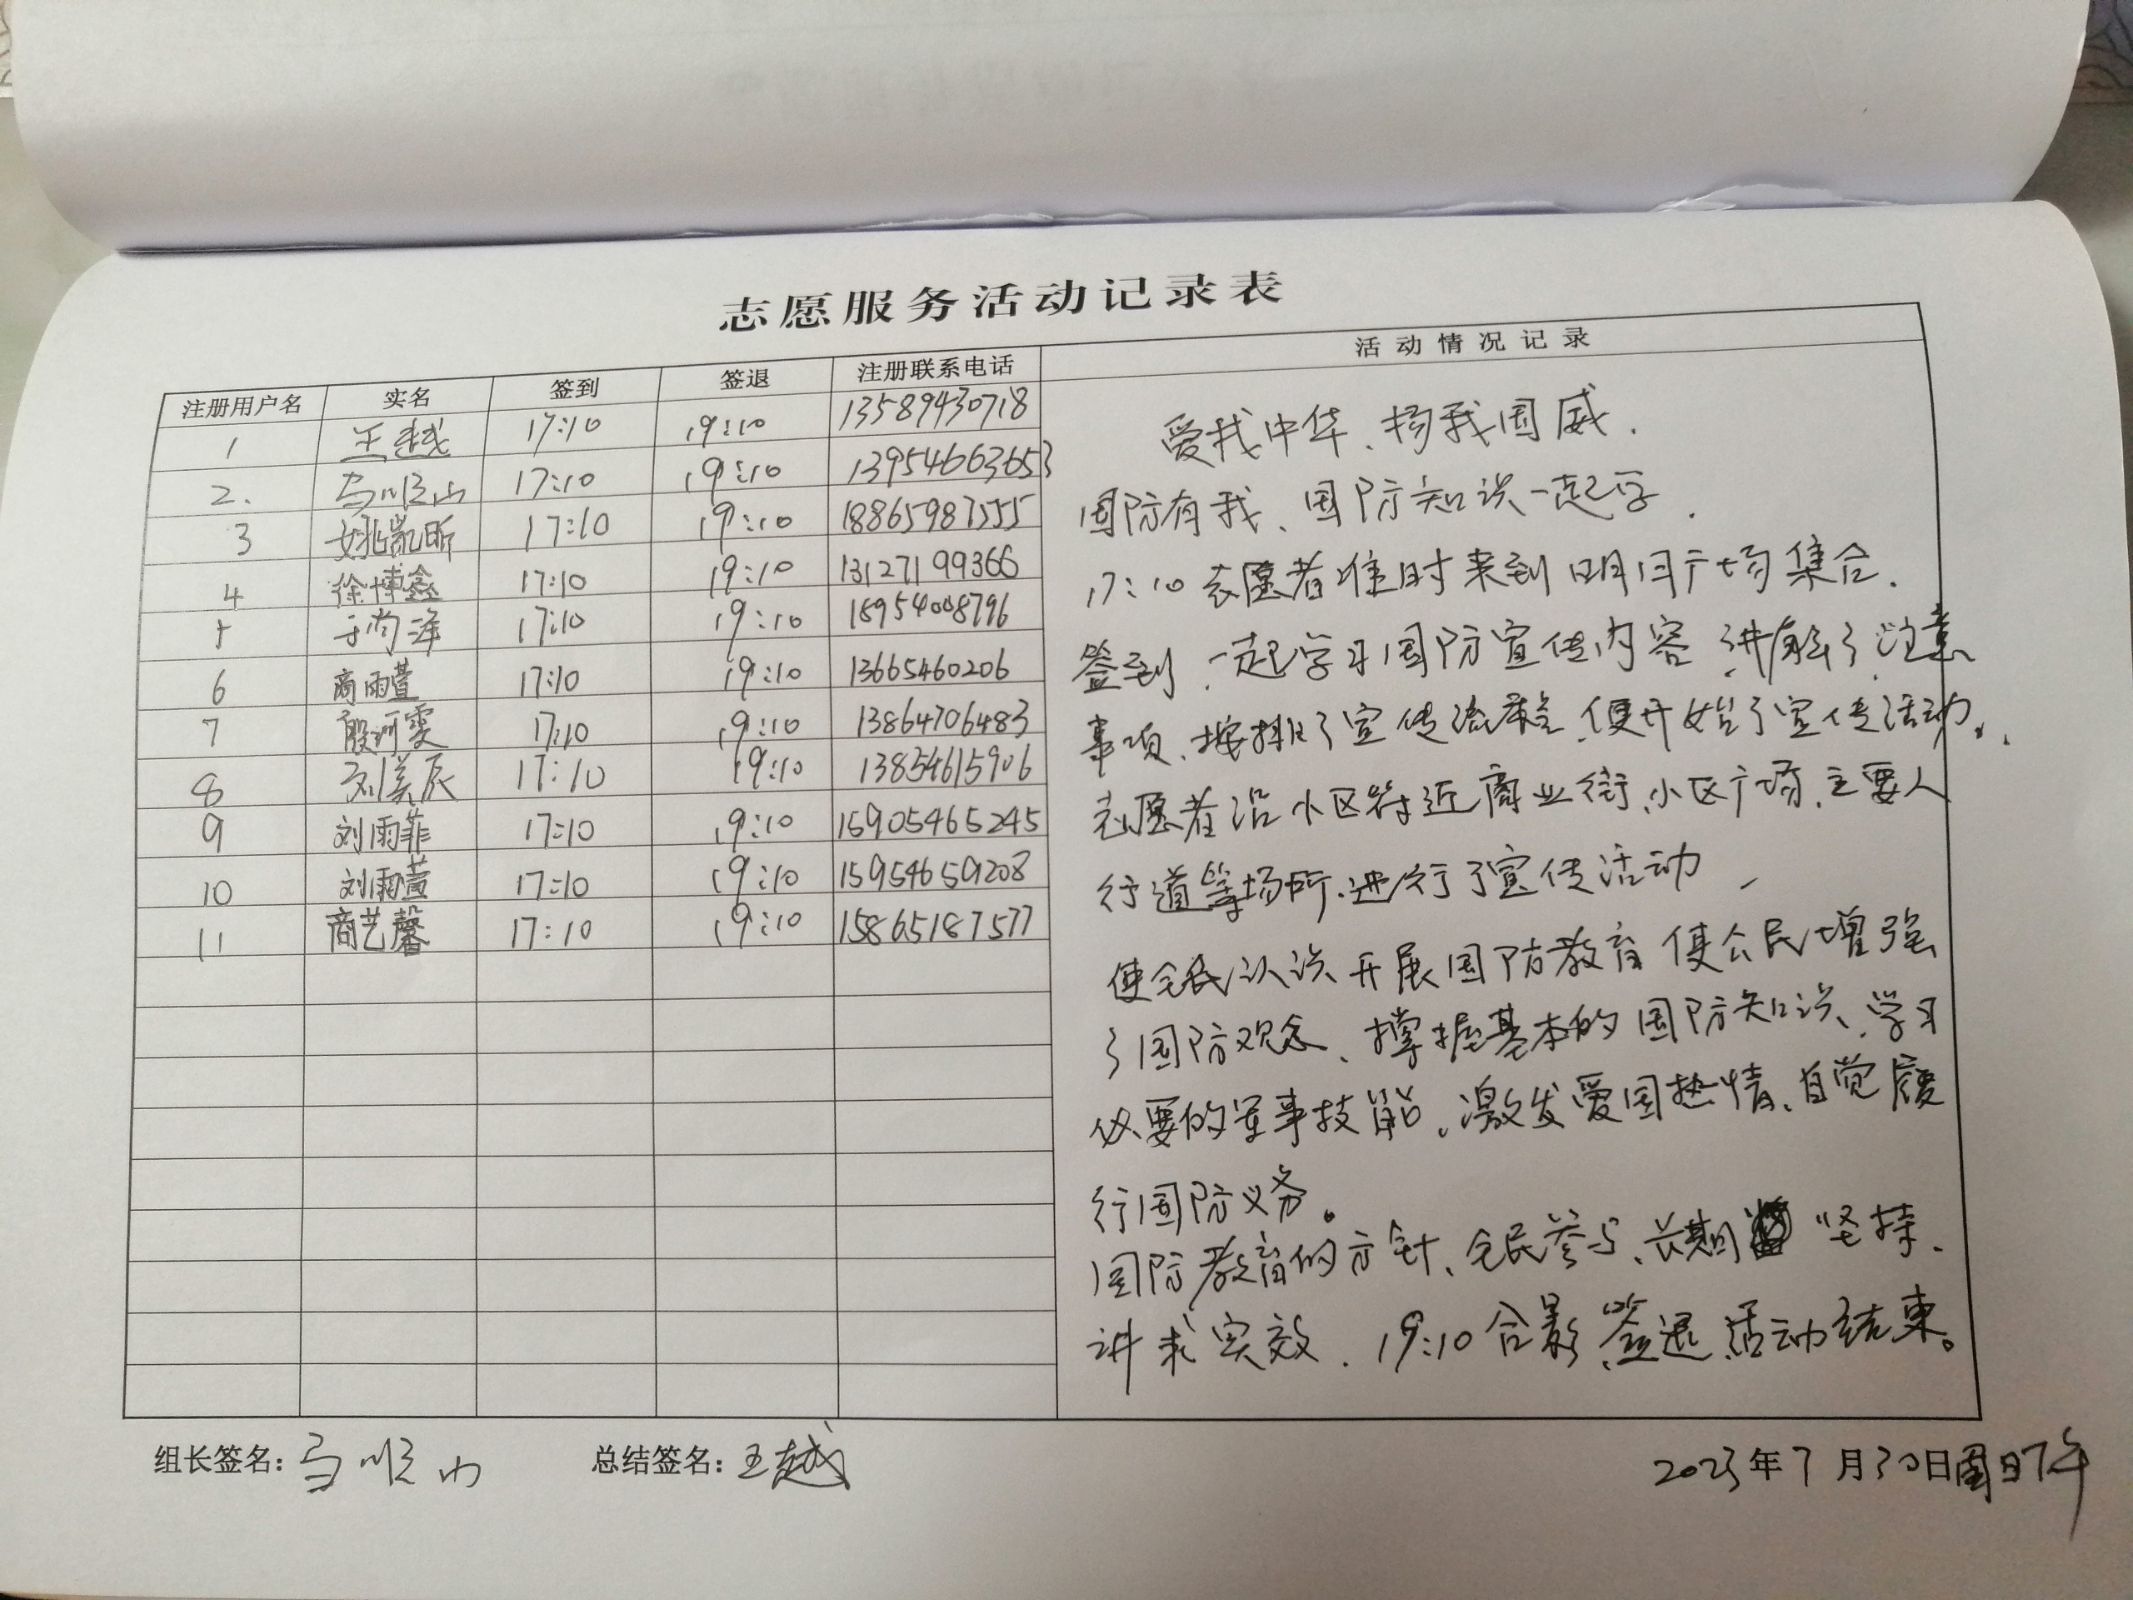 志愿服务活动记录表
注册用户名 实名 签到 签退 注册联系电话 活动情况记录
1 王越 17:10 19:10 13589430718
2. 马顺山 17:10 19:10 13954663653
3 姚凯昕 17:10 19:10 18865987555
4 徐博鑫 17:10 19:10 13127199366
5 于尚泽 17:10 19:10 18954008796
6 商雨萱 17:10 19:10 13665460206
7 殷珂雯 17:10 19:10 13864706483
8 刘美辰 17:10 19:10 13854615906
9 刘雨菲 17:10 19:10 15905465245
10 刘雨萱 17:10 19:10 15954659208
11 商艺馨 17:10 19:10 15865187577
爱我中华、扬我国威.
国防有我、国防知识一起学.
17:10志愿者准时来到明月广场集合.
签到,一起学习国防宣传内容,讲解了注意
事项、按排了宣传流程,便开始了宣传活动.
志愿者沿小区附近商业街,小区广场,主要人
行道等场所,进行了宣传活动
使全民认识开展国防教育使公民增强
了国防观念、掌握基本的国防知识、学习
必要的军事技能,激发爱国热情、自觉履
行国防义务。
国防教育的方针、全民参与、长期 坚持、
讲求实效.19:10合影,签退,活动结束。
组长签名:马顺山 总结签名:王越 2023年7月30日周日下午